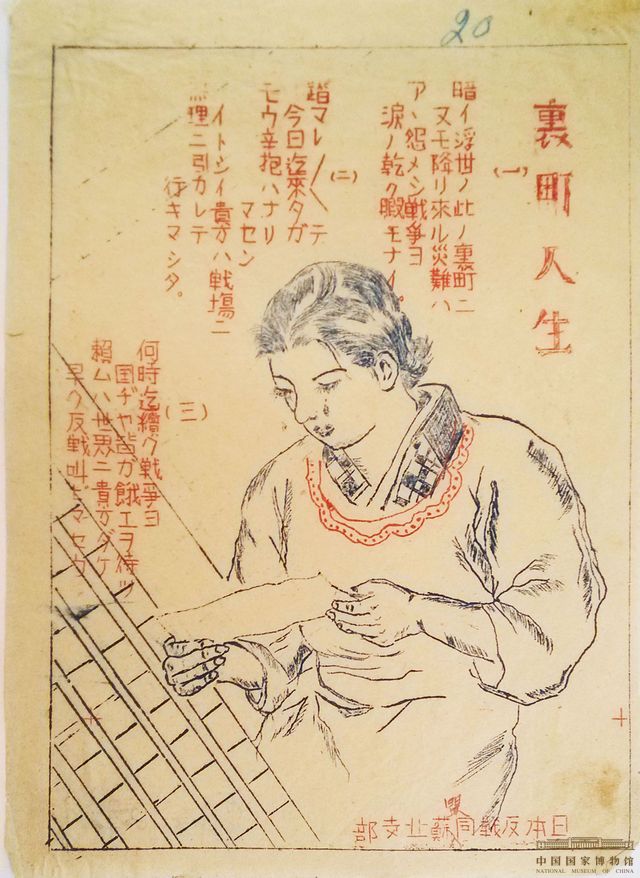 20
裏町人生
(一)
暗イ浮世ノ此ノ裏町ニ
又モ降リ來ル災難ハ
アヽ怨メシ戦爭ヨ
涙ノ乾ク暇モナイ。
(二)
踏マレ/\テ
今日迄來タガ
モウ辛抱ハナリ
マセン
イトシイ貴方ハ戦場ニ
無理ニ引カレテ
行キマシタ。
(三)
何時迄續ク戦爭ヨ
国ヂヤ皆ガ餓エヲ侍ツ
賴ムハ世界ニ貴方ダケ
早ク反戦叫ビマセウ
日本反戦同盟蘇北支部
中国国家博物馆
NATIONAL MUSEUM OF CHINA